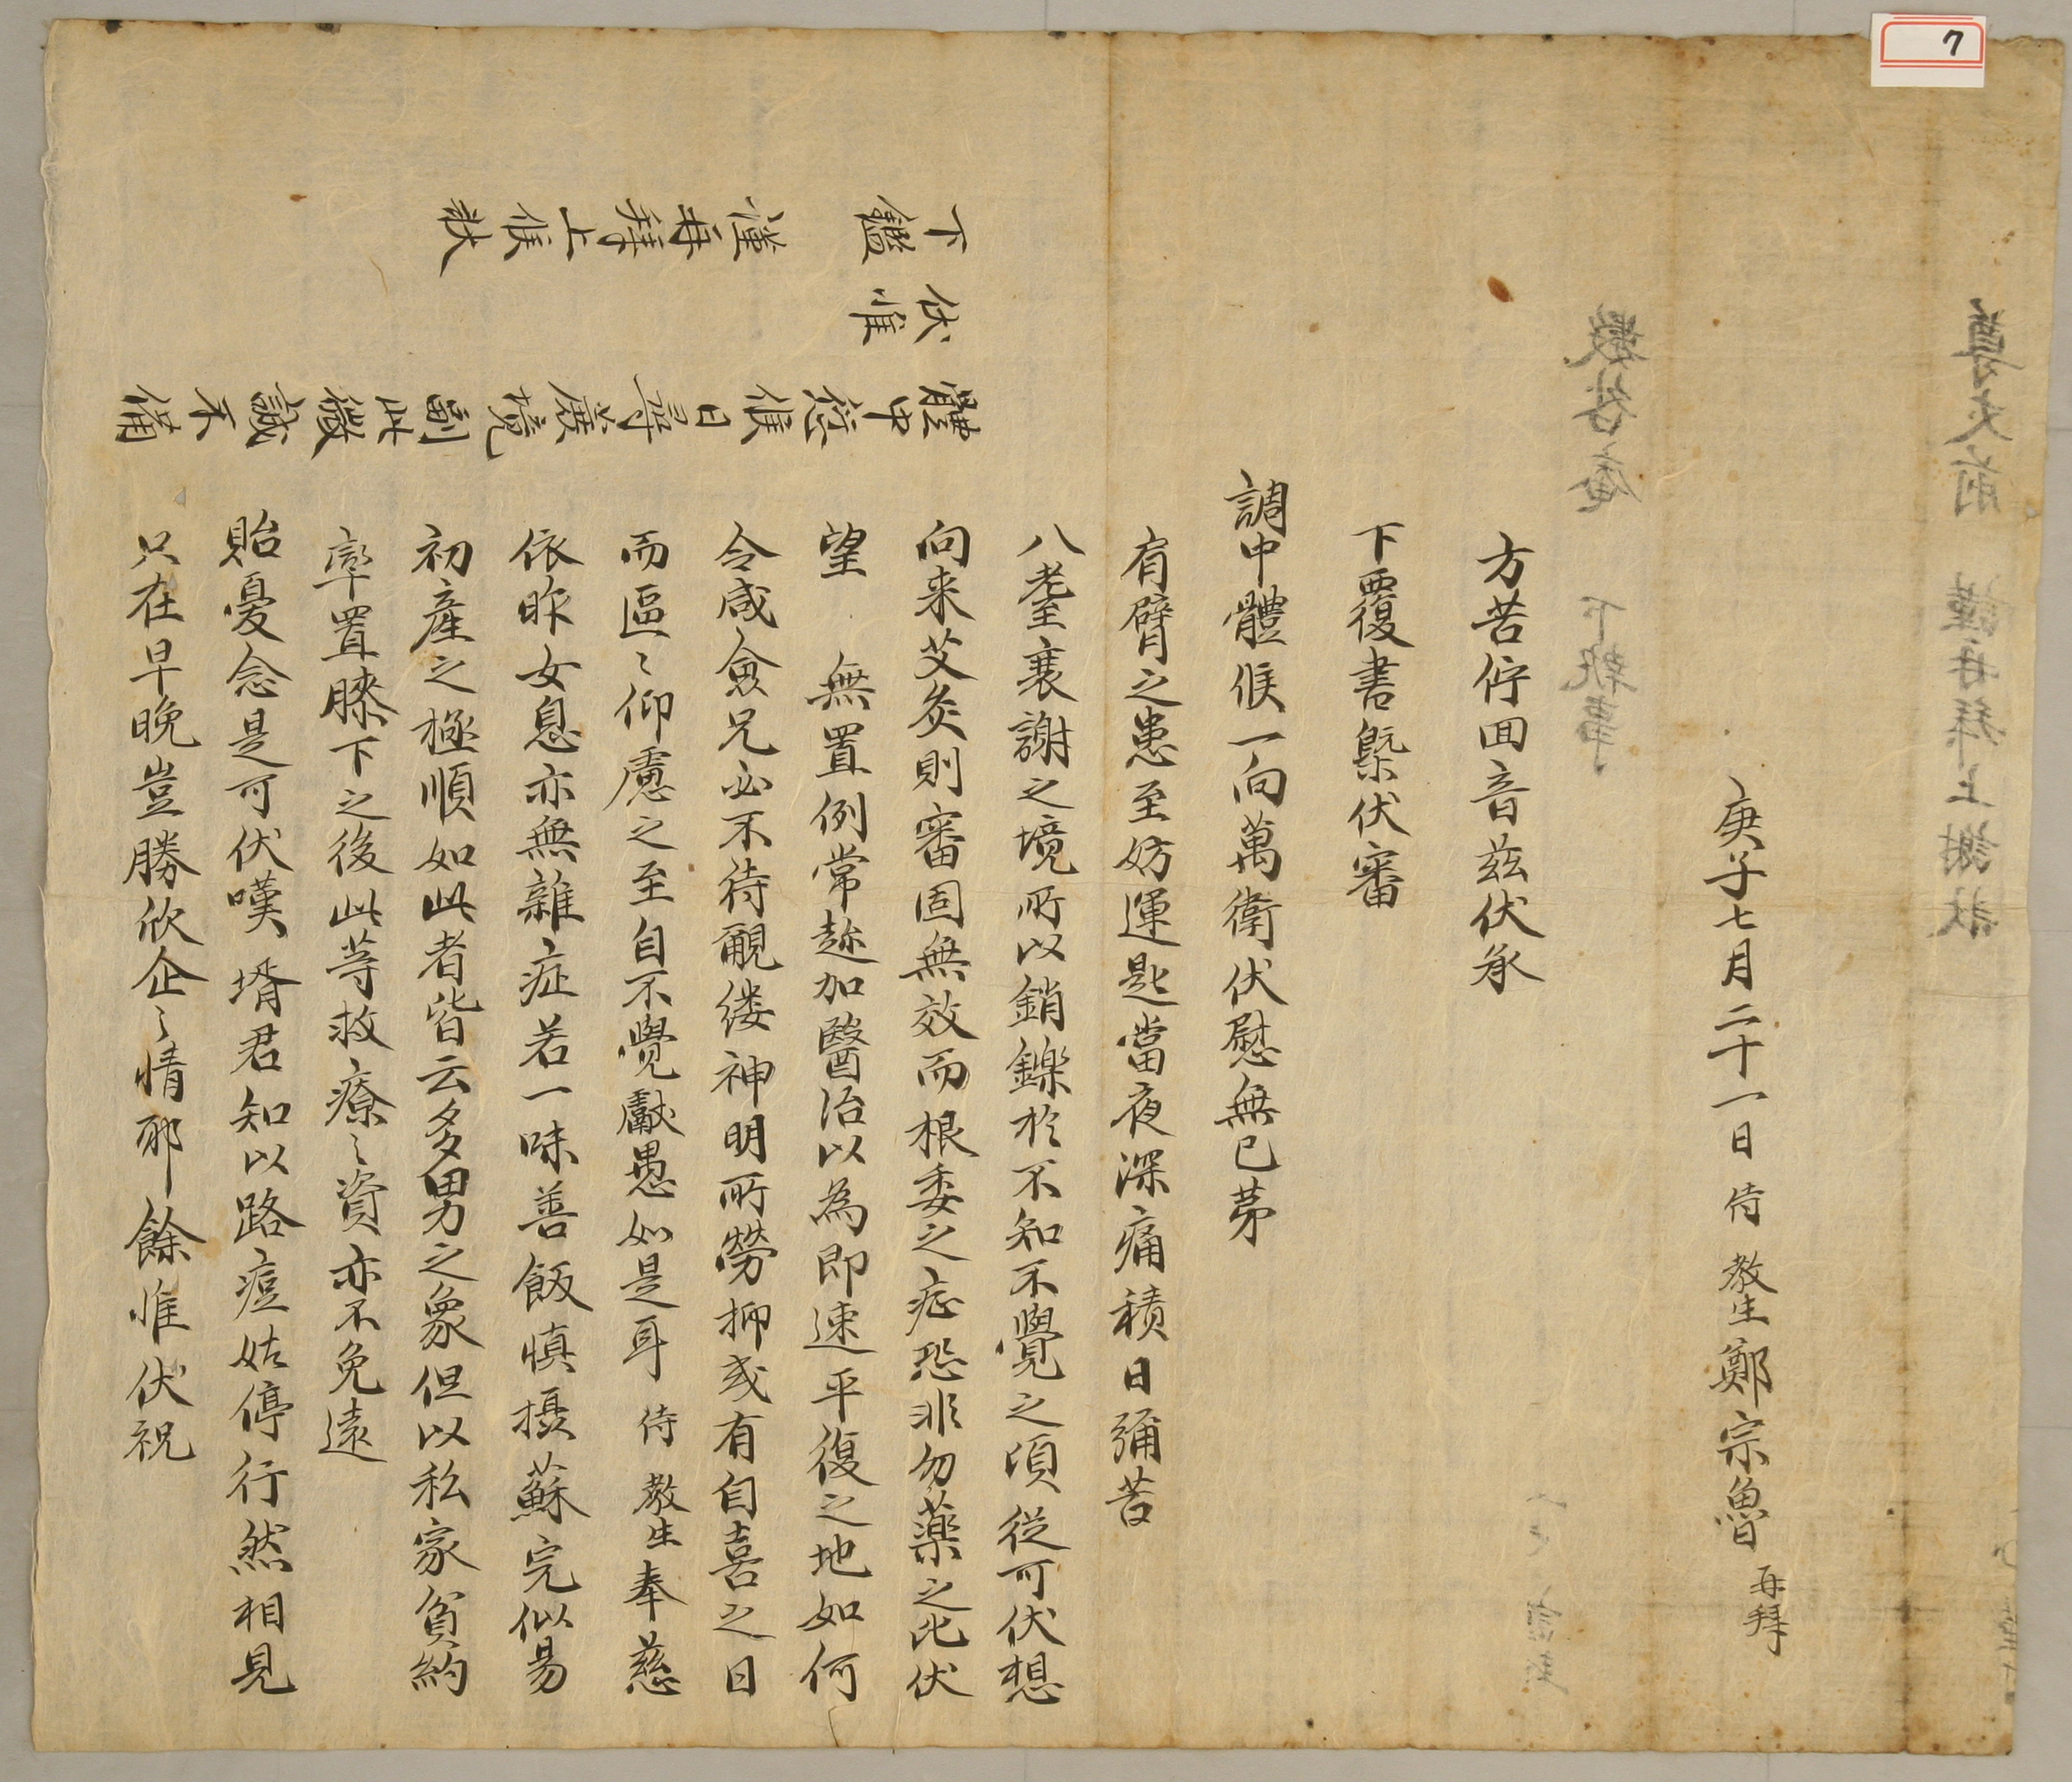 7
方苦佇回音玆伏承
下覆書槩伏審
調中體候一向萬衛伏慰無已苐
有臂之患至妨運匙當夜深痛積日彌苦
八耋衰謝之境所以銷鑠於不知不覺之頃從可伏想
向来艾灸則審固無效而根委之症恐非勿藥之比伏
望 無置例常趂加醫治以為即速平復之地如何
令咸僉兄必不待覼縷神明所勞抑或有自喜之日
而區〻仰慮之至自不覺獻愚如是耳 侍教生奉慈
依昨女息亦無雜症若一味善飯慎攝蘇完似易
初產之極順如此者皆云多男之象但以私家貧約
率置膝下之後此等救療〻資亦不免遠
貽憂念是可伏嘆 壻君知以路痘姑停行然相見
只在早晚豈勝欣企〻情耶 餘惟伏祝
體中從候日尋廣境副此微誠不備
伏惟
下鑑 謹再拜上候狀
庚子七月二十一日 侍 教生 鄭宗魯 再拜
尊丈前 謹再拜上謝狀
數咎庵 下執事